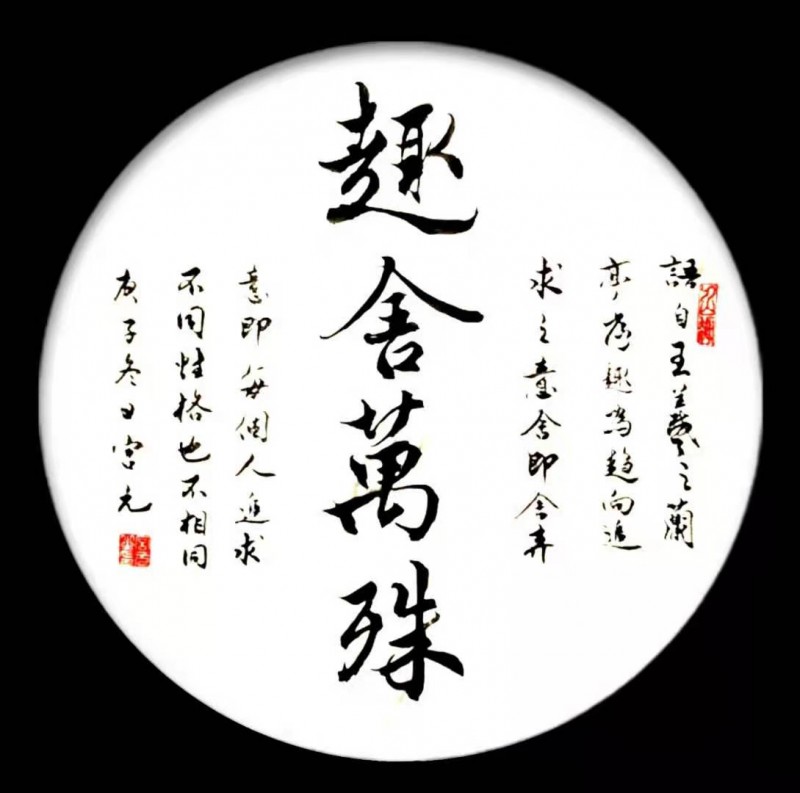 趣舍萬殊
語自王羲之蘭
亭序趣為趨向追
求之意舍即舍弃
意即每個人追求
不同性格也不相同
庚子冬日宫元